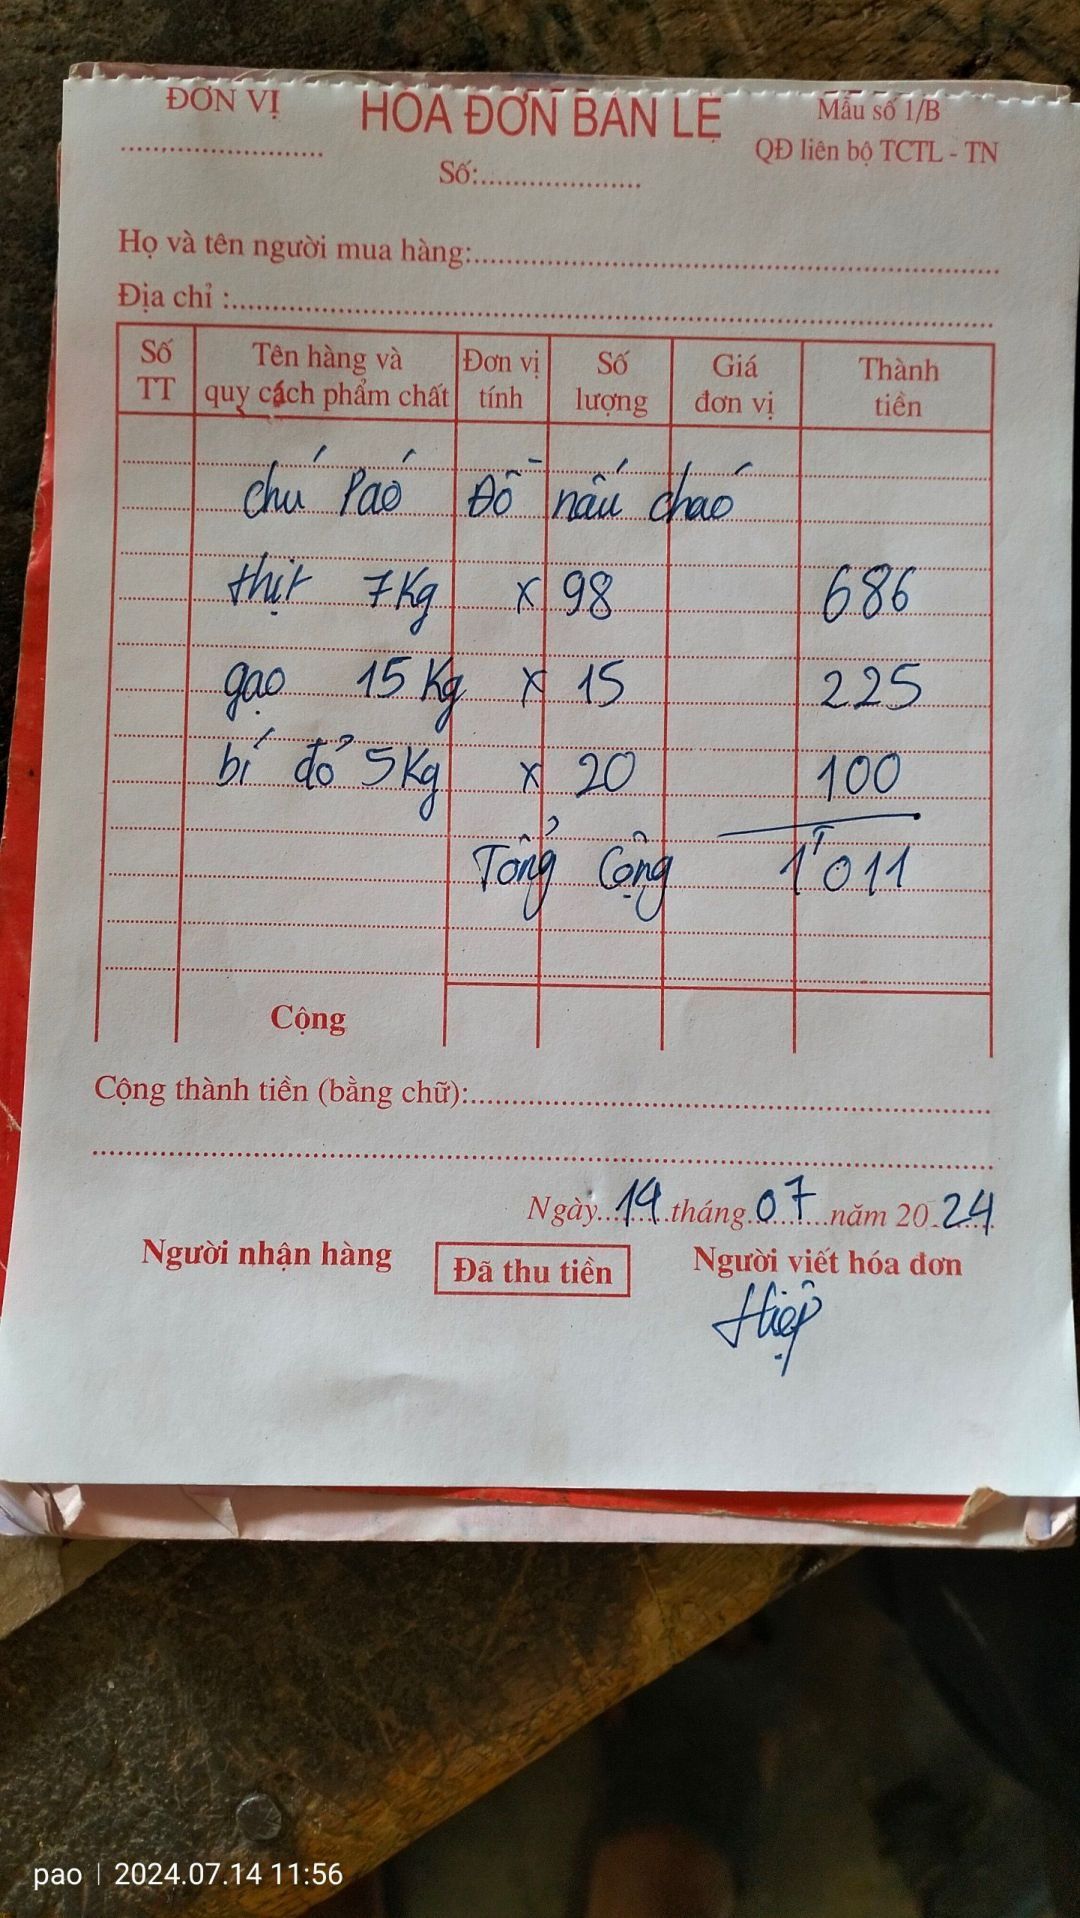 ĐƠN VỊ
HÓA ĐƠN BÁN LẺ
Mẫu số 1/B
QĐ liên bộ TCTL - TN
Số:
Họ và tên người mua hàng:
Địa chỉ :
Số TT
Tên hàng và quy cách phẩm chất
Đơn vị tính
Số lượng
Giá đơn vị
Thành tiền
chú Páo Đồ nấu cháo
thịt 7Kg x 98 686
gạo 15Kg x 15 225
bí đỏ 5Kg x 20 100
Tổng Cộng 1'011
Cộng
Cộng thành tiền (bằng chữ):
Ngày 14 tháng 07 năm 2024
Người nhận hàng
Đã thu tiền
Người viết hóa đơn
Hiệp
pao | 2024.07.14 11:56